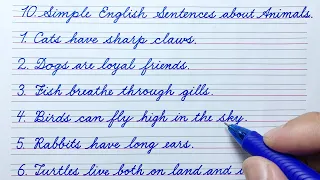 10 Simple English Sentences about Animals.
1. Cats have sharp claws.
2. Dogs are loyal friends.
3. Fish breathe through gills.
4. Birds can fly high in the sky.
5. Rabbits have long ears.
6. Turtles live both on land and